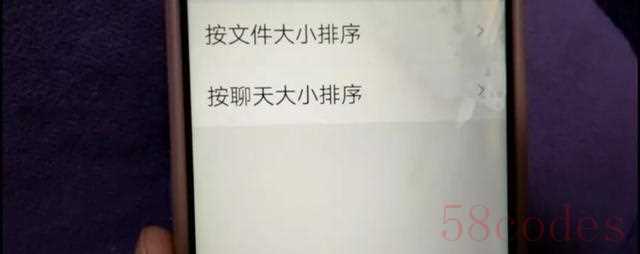 按文件大小排序
按聊天大小排序
58codes